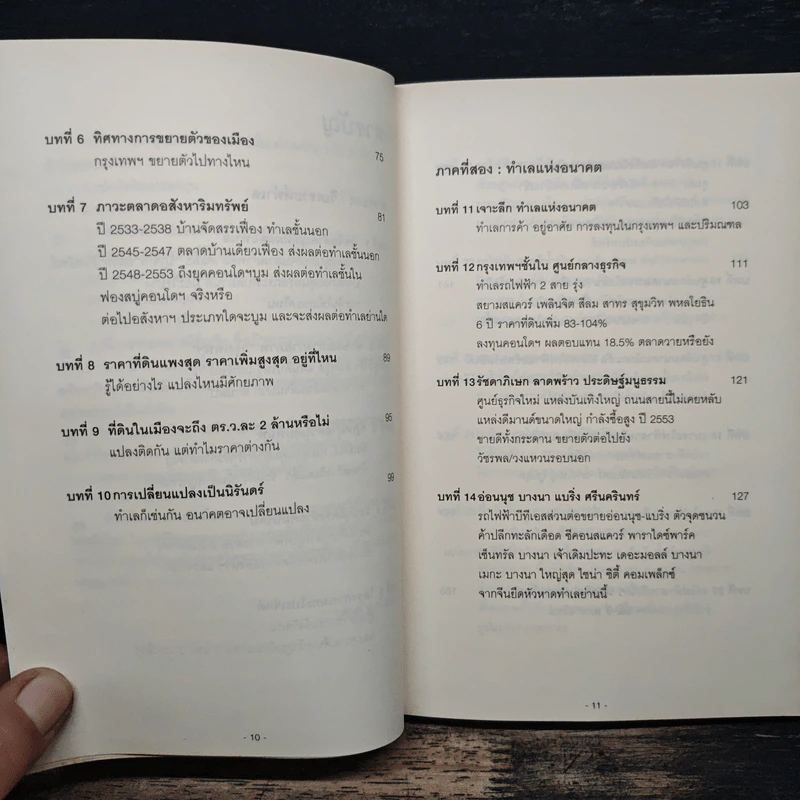 บทที่ 6 ทิศทางการขยายตัวของเมือง
กรุงเทพฯ ขยายตัวไปทางไหน 75
บทที่ 7 ภาวะตลาดอสังหาริมทรัพย์ 81
ปี 2533-2538 บ้านจัดสรรเฟื่อง ทำเลชั้นนอก
ปี 2545-2547 ตลาดบ้านเดี่ยวเฟื่อง ส่งผลต่อทำเลชั้นนอก
ปี 2548-2553 ถึงยุคคอนโดฯบูม ส่งผลต่อทำเลชั้นใน
ฟองสบู่คอนโดฯ จริงหรือ
ต่อไปอสังหาฯ ประเภทใดจะบูม และจะส่งผลต่อทำเลย่านใด
บทที่ 8 ราคาที่ดินแพงสุด ราคาเพิ่มสูงสุด อยู่ที่ไหน 89
รู้ได้อย่างไร แปลงไหนมีศักยภาพ
บทที่ 9 ที่ดินในเมืองจะถึง ตร.ว.ละ 2 ล้านหรือไม่ 95
แปลงติดกัน แต่ทำไมราคาต่างกัน
บทที่ 10 การเปลี่ยนแปลงเป็นนิรันดร์ 99
ทำเลก็เช่นกัน อนาคตอาจเปลี่ยนแปลง
- 10 -
ภาคที่สอง : ทำเลแห่งอนาคต
บทที่ 11 เจาะลึก ทำเลแห่งอนาคต 103
ทำเลการค้า อยู่อาศัย การลงทุนในกรุงเทพฯ และปริมณฑล
บทที่ 12 กรุงเทพฯชั้นใน ศูนย์กลางธุรกิจ 111
ทำเลรถไฟฟ้า 2 สาย รุ่ง
สยามสแควร์ เพลินจิต สีลม สาทร สุขุมวิท พหลโยธิน
6 ปี ราคาที่ดินเพิ่ม 83-104%
ลงทุนคอนโดฯ ผลตอบแทน 18.5% ตลาดวายหรือยัง
บทที่ 13 รัชดาภิเษก ลาดพร้าว ประดิษฐ์มนูธรรม 121
ศูนย์ธุรกิจใหม่ แหล่งบันเทิงใหญ่ ถนนสายนี้ไม่เคยหลับ
แหล่งดีมานด์ขนาดใหญ่ กำลังซื้อสูง ปี 2553
ขายดีทั้งกระดาน ขยายตัวต่อไปยัง
วัชรพล/วงแหวนรอบนอก
บทที่ 14 อ่อนนุช บางนา แบริ่ง ศรีนครินทร์ 127
รถไฟฟ้าบีทีเอสส่วนต่อขยายอ่อนนุช-แบริ่ง ตัวจุดชนวน
ค้าปลีกทะลักเดือด ซีคอนสแควร์ พาราไดซ์พาร์ค
เซ็นทรัล บางนา เจ้าเดิมปะทะ เดอะมอลล์ บางนา
เมกะ บางนา ใหญ่สุด ไชน่า ซิตี้ คอมเพล็กซ์
จากจีนยึดหัวหาดทำเลย่านนี้
- 11 -